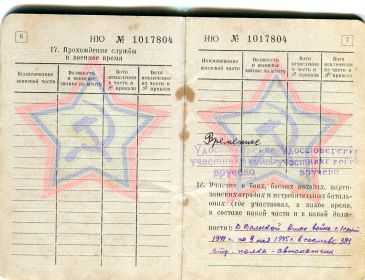 6
НЮ № 1017804
17. Прохождение службы
в военное время
Наименование воинской части
Должность и военное звание по штату
Дата зачисления в часть и № приказа
Дата исключения из части и № приказа
НЮ № 1017804
7
Наименование воинской части
Должность и военное звание по штату
Дата зачисления в часть и № приказа
Дата исключения из части и № приказа
Временное
Удостоверение
участника войны
вручено
Удостоверение
участника
вручено
18. Участие в боях, боевых походах, парти-
занских отрядах и истребительных баталь-
онах (где участвовал, в какое время,
в составе какой части и в какой долж-
ности): В Великой
войне с
1941 г. по 9 мая 1945 г. в составе 381
стр. полка - автоматчик